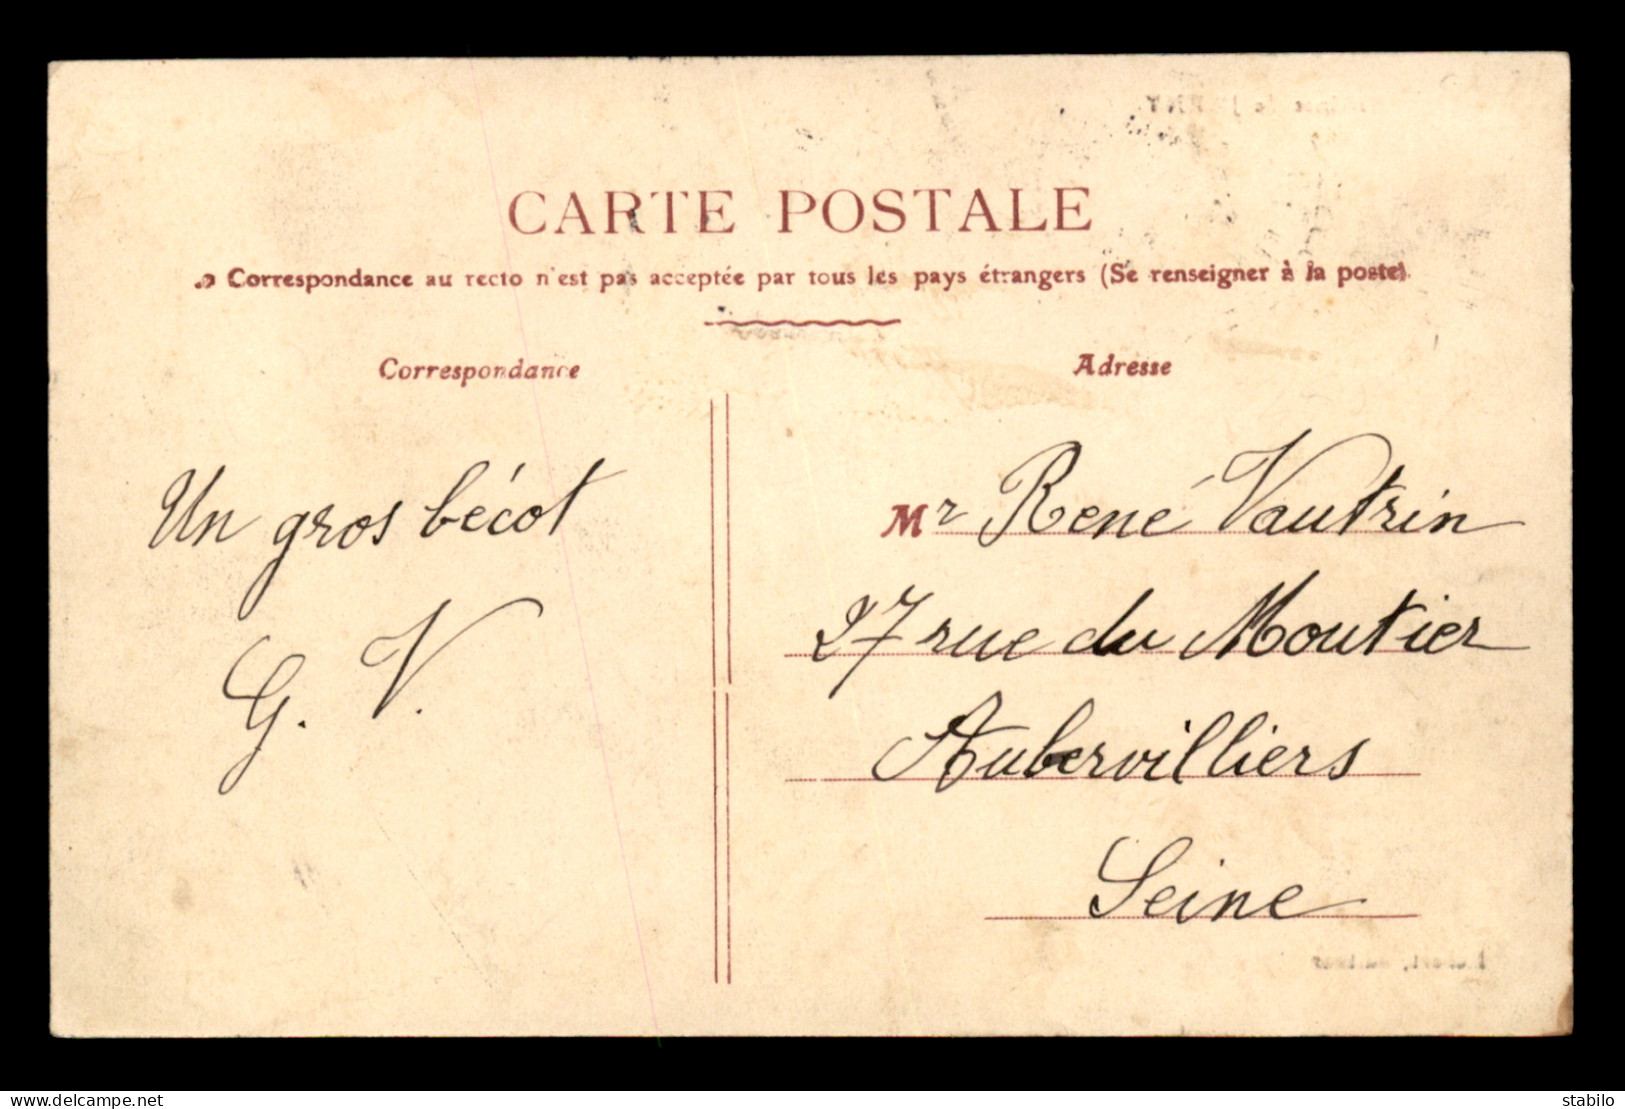 CARTE POSTALE
Correspondance au recto n'est pas acceptée par tous les pays étrangers (Se renseigner à la poste).
Correspondance
Adresse
Un gros bécot
G. V.
Mr René Vautrin
27 rue du Moutier
Aubervilliers
Seine
delcampe.net
stabilo